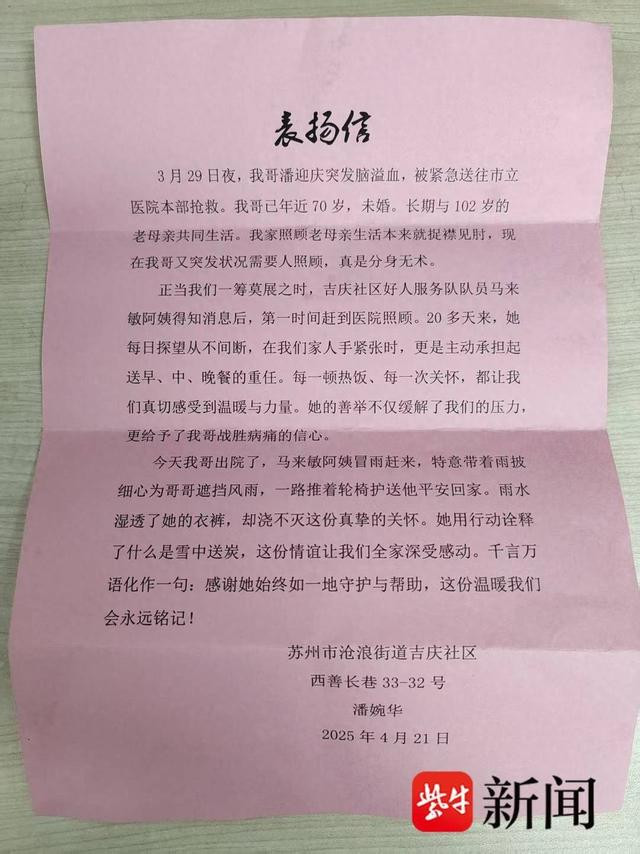 表扬信
3月29日夜，我哥潘迎庆突发脑溢血，被紧急送往市立
医院本部抢救。我哥已年近70岁，未婚。长期与102岁的
老母亲共同生活。我家照顾老母亲生活本来就捉襟见肘，现
在我哥又突发状况需要人照顾，真是分身无术。
正当我们一筹莫展之时，吉庆社区好人服务队队员马来
敏阿姨得知消息后，第一时间赶到医院照顾。20多天来，她
每日探望从不间断，在我们家人手紧张时，更是主动承担起
送早、中、晚餐的重任。每一顿热饭、每一次关怀，都让我
们真切感受到温暖与力量。她的善举不仅缓解了我们的压力，
更给予了我哥战胜病痛的信心。
今天我哥出院了，马来敏阿姨冒雨赶来，特意带着雨披
细心为哥哥遮挡风雨，一路推着轮椅护送他平安回家。雨水
湿透了她的衣裤，却浇不灭这份真挚的关怀。她用行动诠释
了什么是雪中送炭，这份情谊让我们全家深受感动。千言万
语化作一句：感谢她始终如一地守护与帮助，这份温暖我们
会永远铭记！
苏州市沧浪街道吉庆社区
西善长巷33-32号
潘婉华
2025年4月21日
紫牛新闻